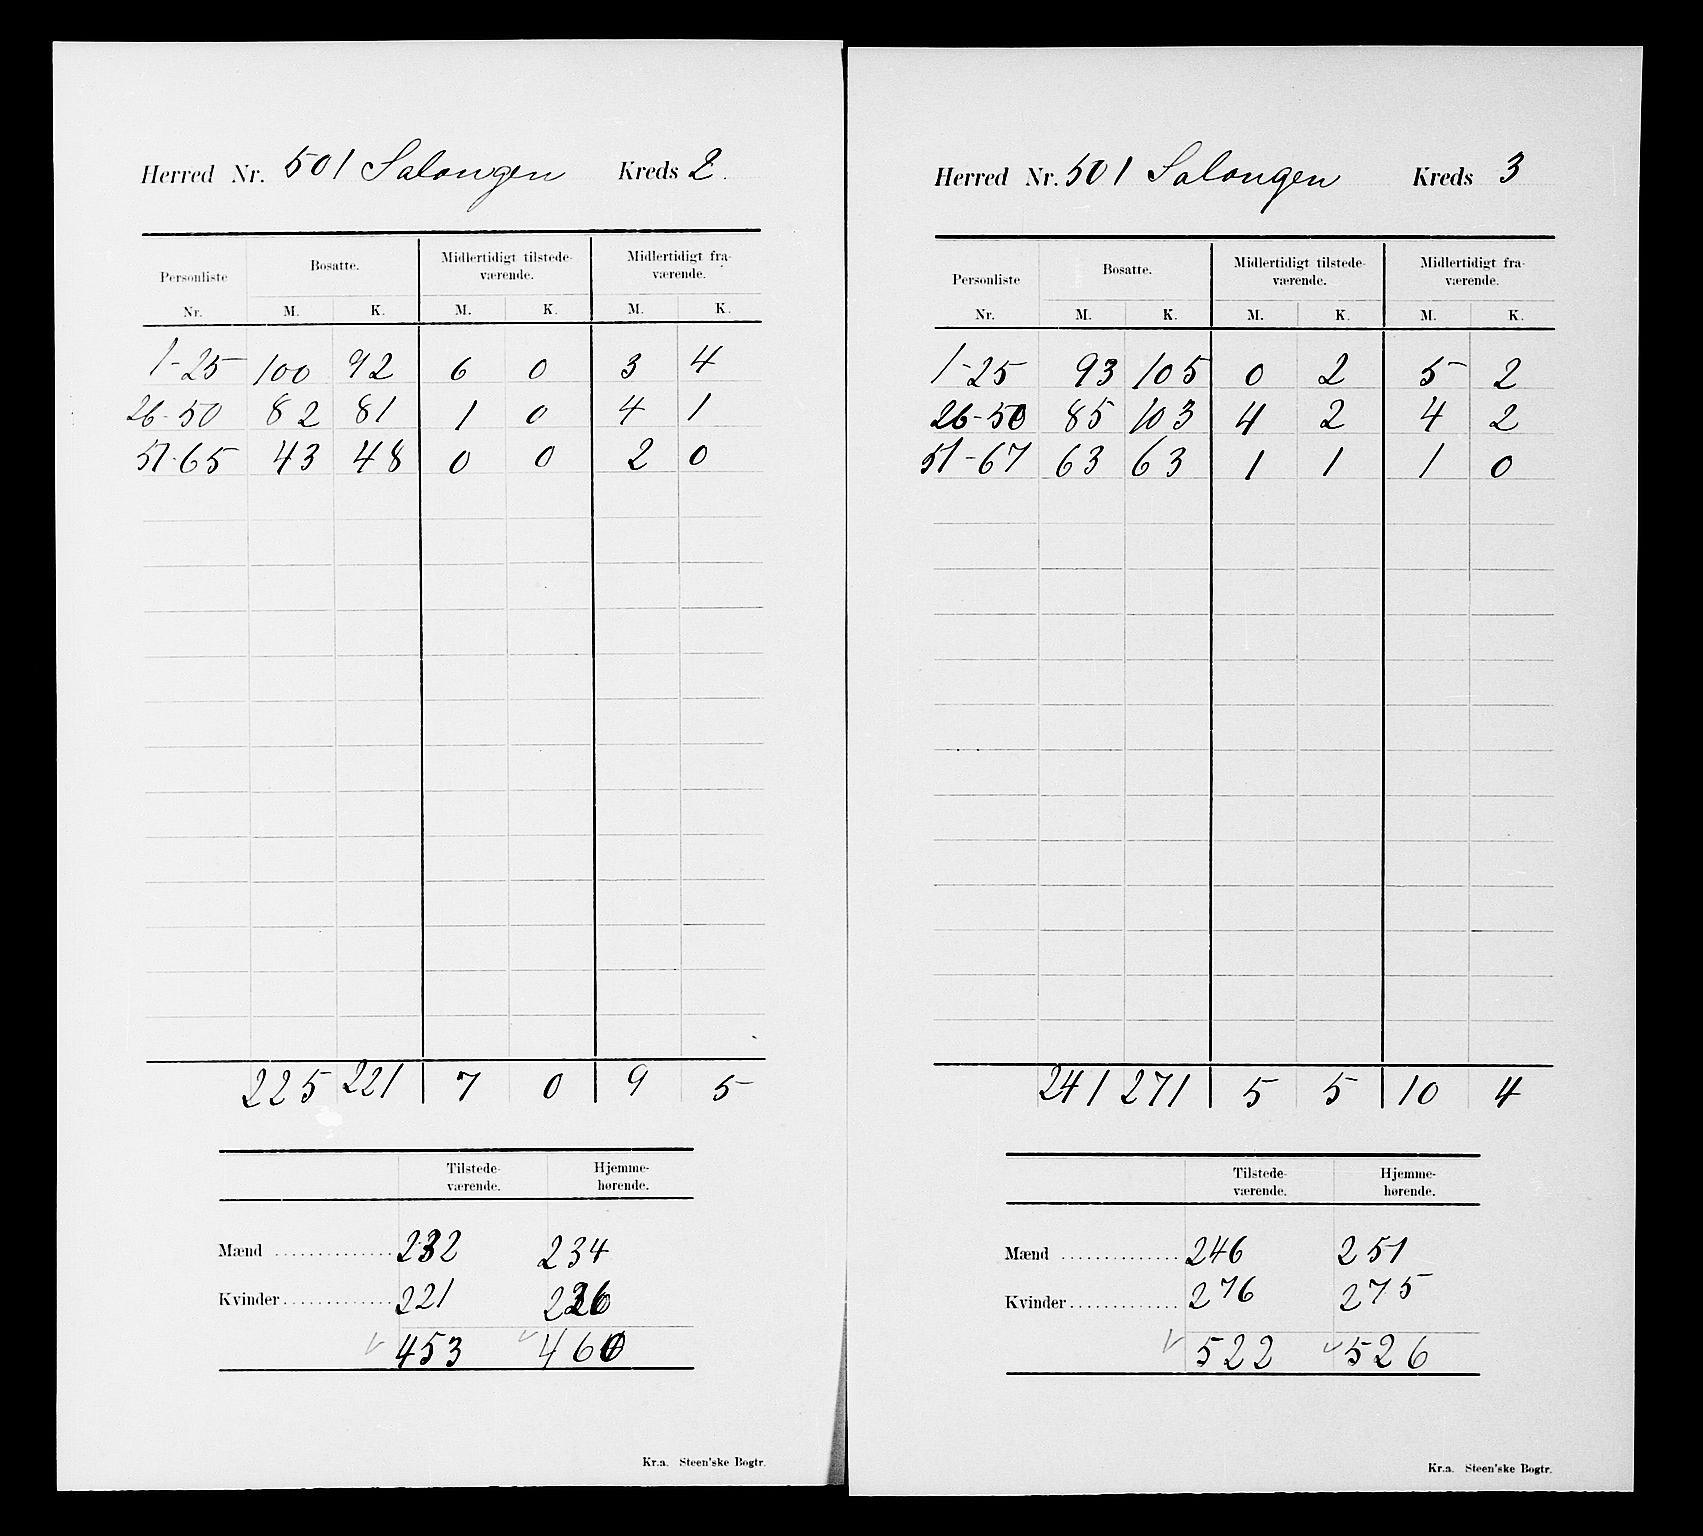 Herred Nr. 501 Salangen Kreds 2.
Personliste Nr. Bosatte. Midlertidigt tilstede-værende. Midlertidigt fra-værende.
M. K. M. K. M. K.
1-25 100 92 6 0 3 4
26-50 82 81 1 0 4 1
51-65 43 48 0 0 2 0
225 221 7 0 9 5
Tilstede-værende. Hjemme-hørende.
Mænd 232 234
Kvinder 221 226
453 460
Kr.a. Steen'ske Bogtr.
Herred Nr. 501 Salangen Kreds 3
Personliste Nr. Bosatte. Midlertidigt tilstede-værende. Midlertidigt fra-værende.
M. K. M. K. M. K.
1-25 93 105 0 2 5 2
26-50 85 103 4 2 4 2
51-67 63 63 1 1 1 0
241 271 5 5 10 4
Tilstede-værende. Hjemme-hørende.
Mænd 246 251
Kvinder 276 275
522 526
Kr.a. Steen'ske Bogtr.